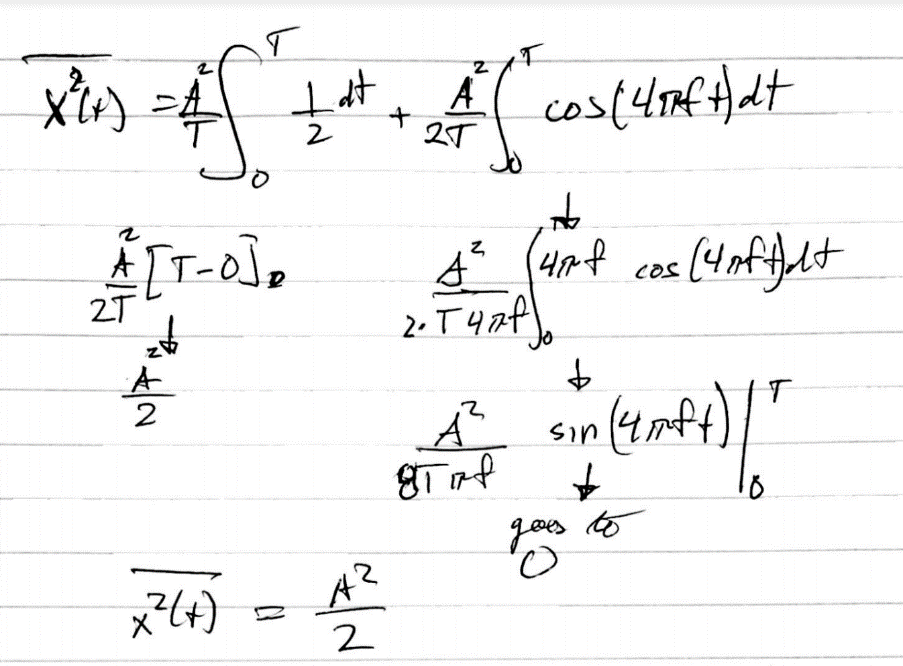 x²(t) = A²/T ∫₀ᵀ 1/2 dt + A²/2T ∫₀ᵀ cos(4πft)dt
A²/2T [T-0]    A²/2·T4πf ∫₀ 4πf cos(4πft)dt
↓    ↓
A²/2    A²/8Tπf sin(4πft)|₀ᵀ
↓
goes to
0
x²(t) = A²/2